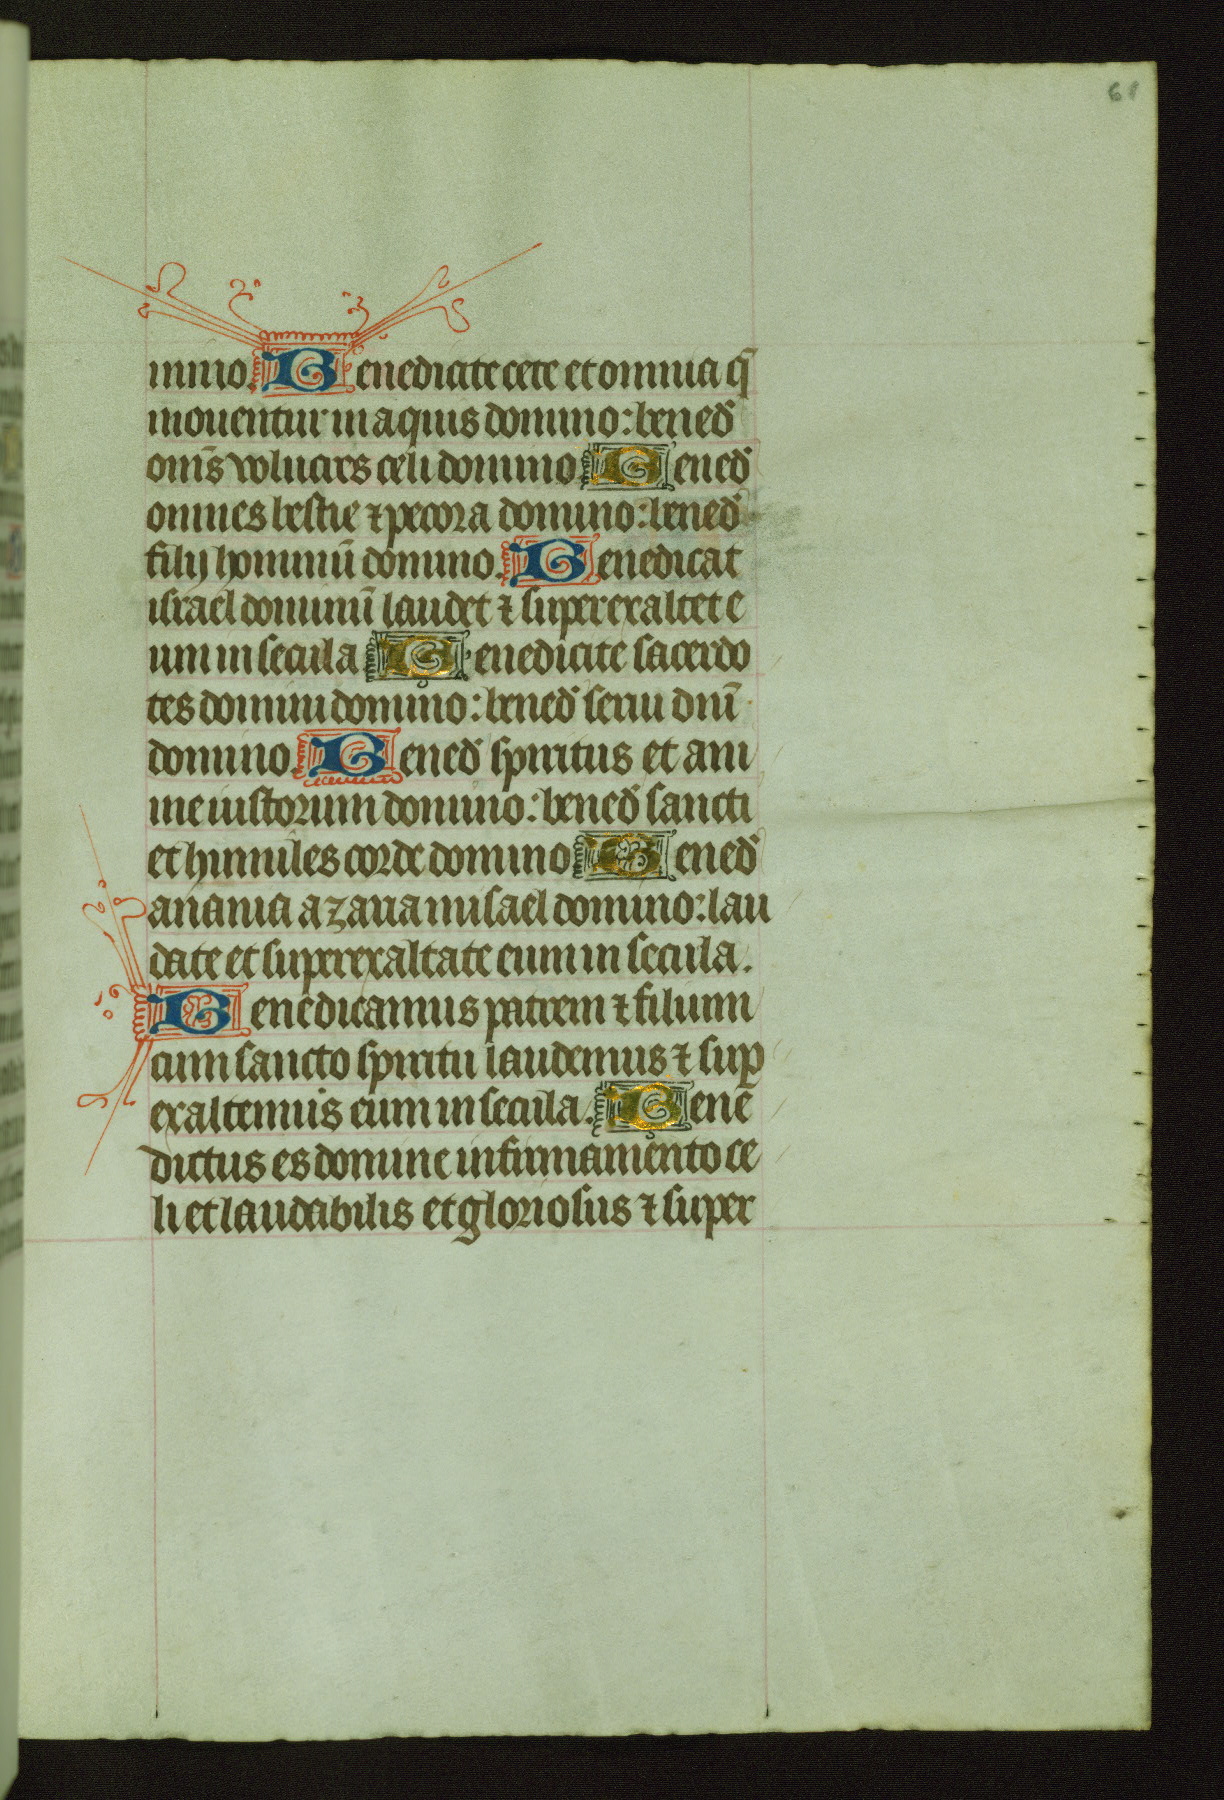 61
mino. Benedicite cete et omnia q̄
mouentur in aquis domino: bened̄
om̄s volucres celi domino Bened̄
omnes bestie ⁊ pecora domino: bened̄
filij hominū domino. Benedicat
israel dominū laudet ⁊ superexaltet e
um in secula Benedicite sacerdo
tes domini domino: bened̄ serui dn̄i
domino. Bened̄ spiritus et ani
me iustorum domino: bened̄ sancti
et humiles corde domino Bened̄
anania azaria misael domino: lau
date et superexaltate eum in secula.
Benedicamus patrem ⁊ filium
cum sancto spiritu laudemus ⁊ suꝑ
exaltemus eum in secula. Bene
dictus es domine in firmamento ce
li et laudabilis et gloriosus ⁊ super